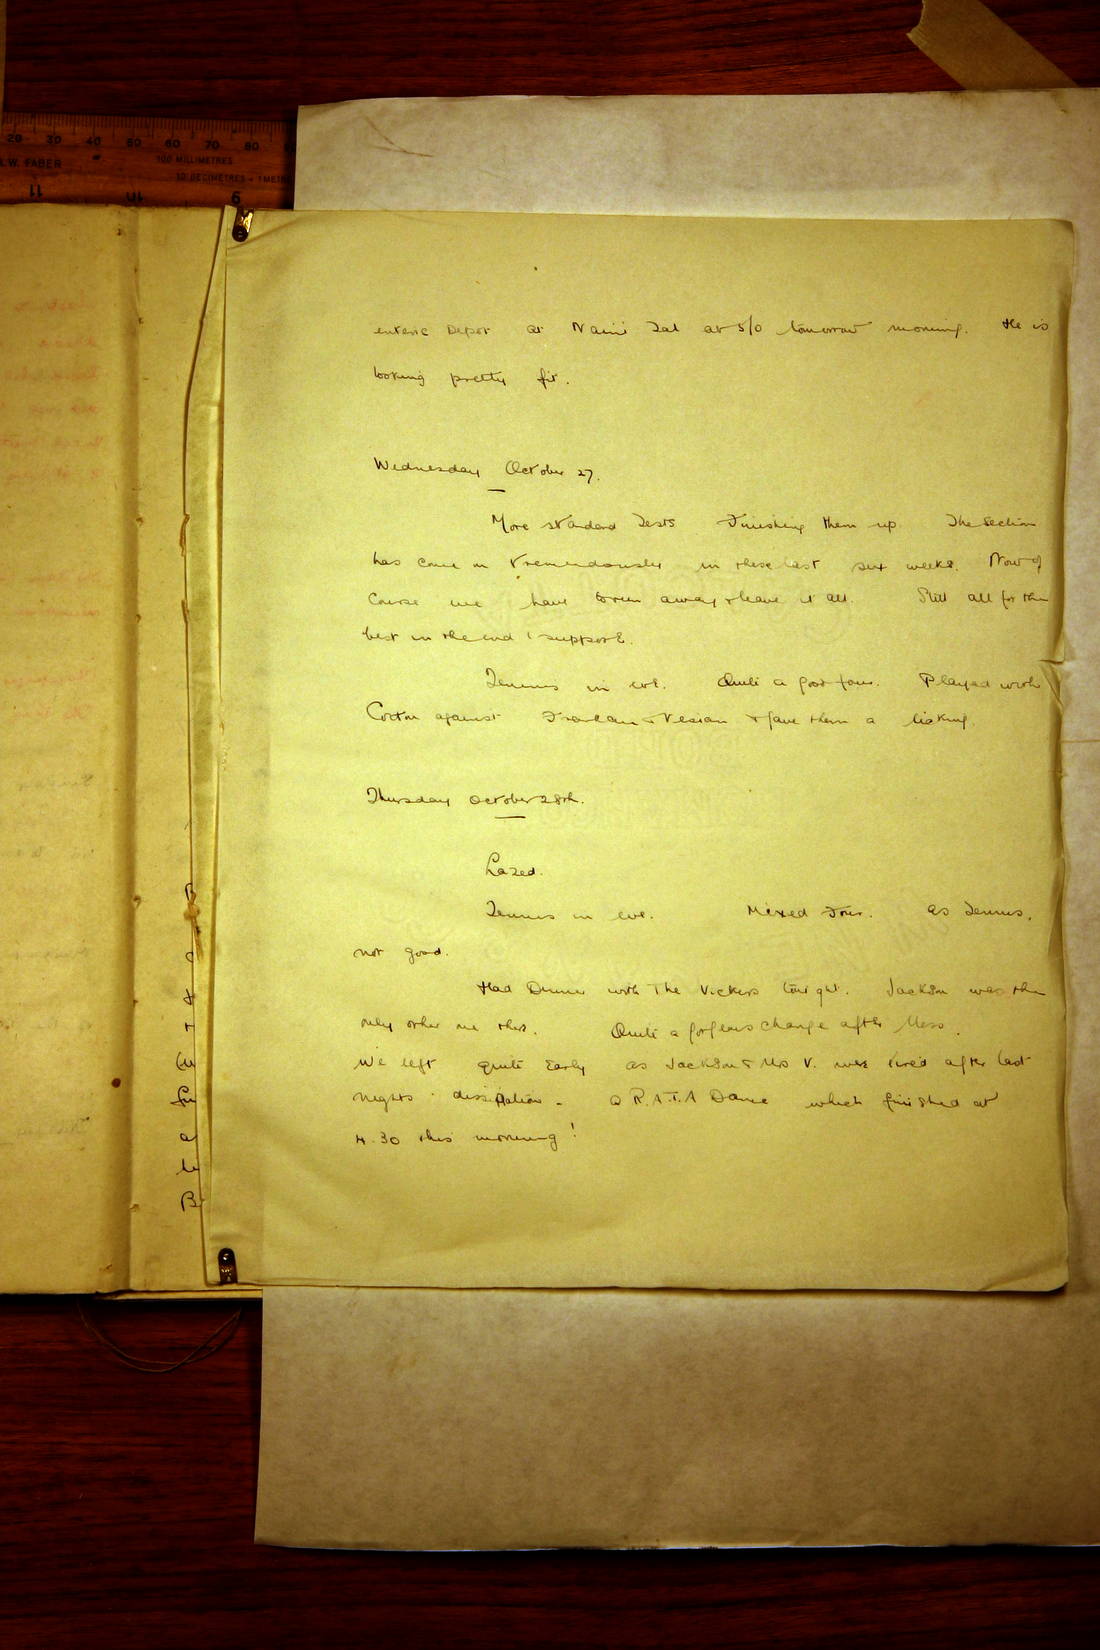 20 30 40 50 60 70 80
W. FABER
100 MILLIMETRES
10 DECIMETRES = 1 METRE
11 10 9
enteric Depot at Naini Tal at 5/0 tomorrow morning. He is
looking pretty fit.
Wednesday October 27.
More standard Tests Finishing them up. The Section
has come on tremendously in these last six weeks. Now of
course we have to run away & leave it all. Still all for the
best in the end I suppose.
Tennis in eve. Quite a good four. Played with
Cotton against & Vesian & gave them a licking.
Thursday October 28th.
Lazed.
Tennis in eve. Mixed Four. as Tennis,
not good.
Had Dinner with The Vickers tonight. Jackson was the
only other one there. Quite a gorgeous change after Mess.
We left quite Early as Jackson & Mrs V. were tired after last
nights dissipation - a R.A.T.A Dance which finished at
4.30 this morning!